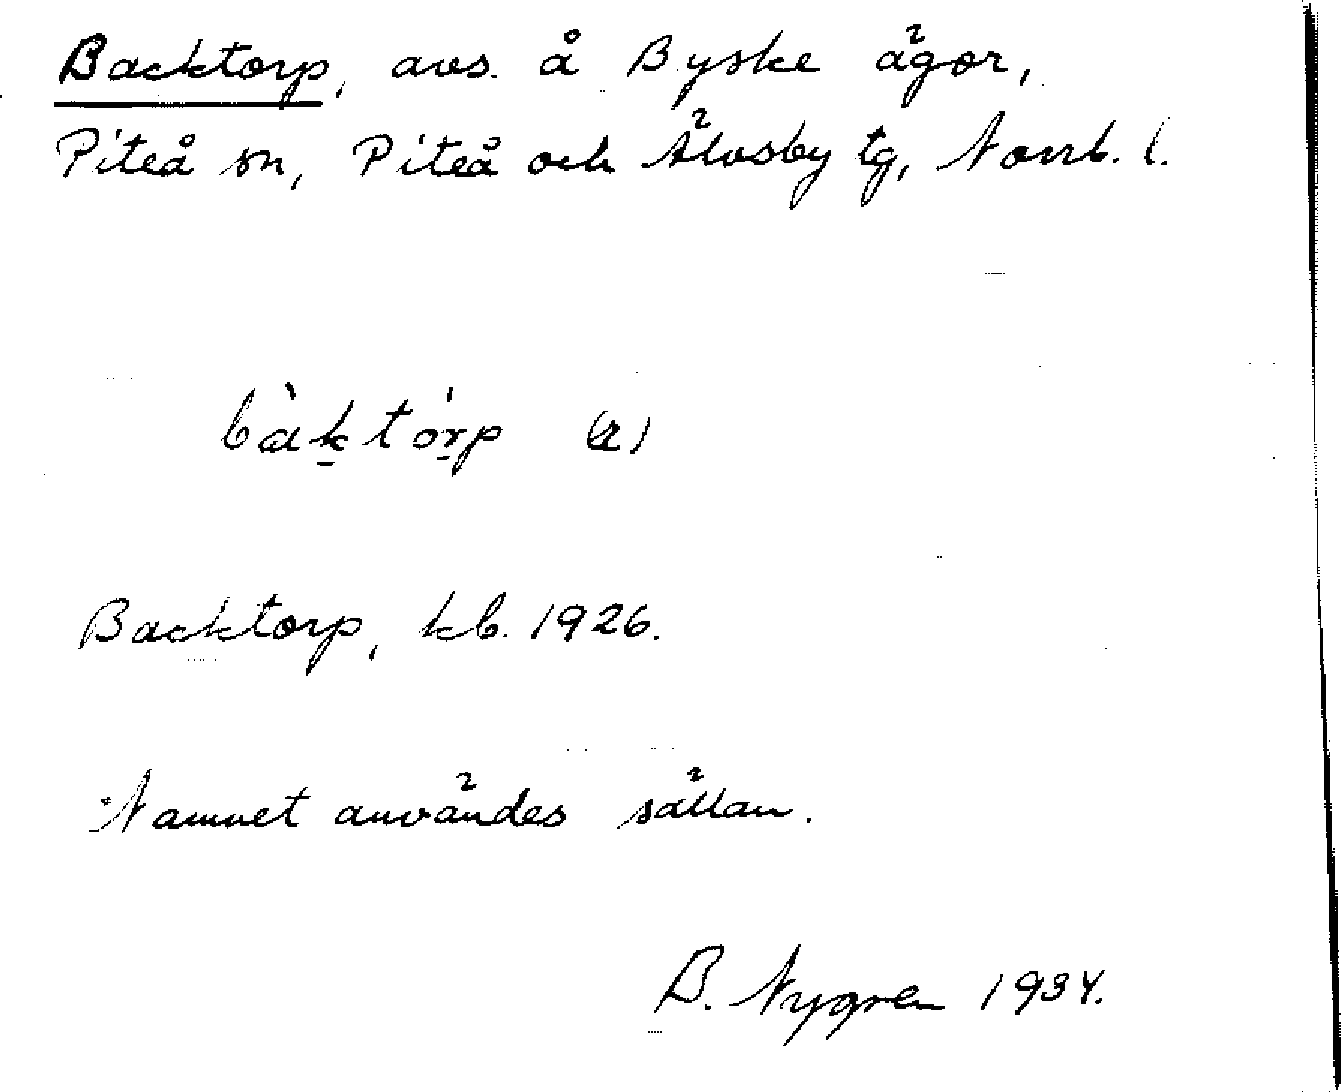 Backtorp, avs. å Byske ägor,
Piteå sn, Piteå och Älvsby tg, Norrb. l.
bàk̠tór̠p (2)
Backtorp, kb. 1926.
Namnet användes sällan.
B. Nygren 1934.